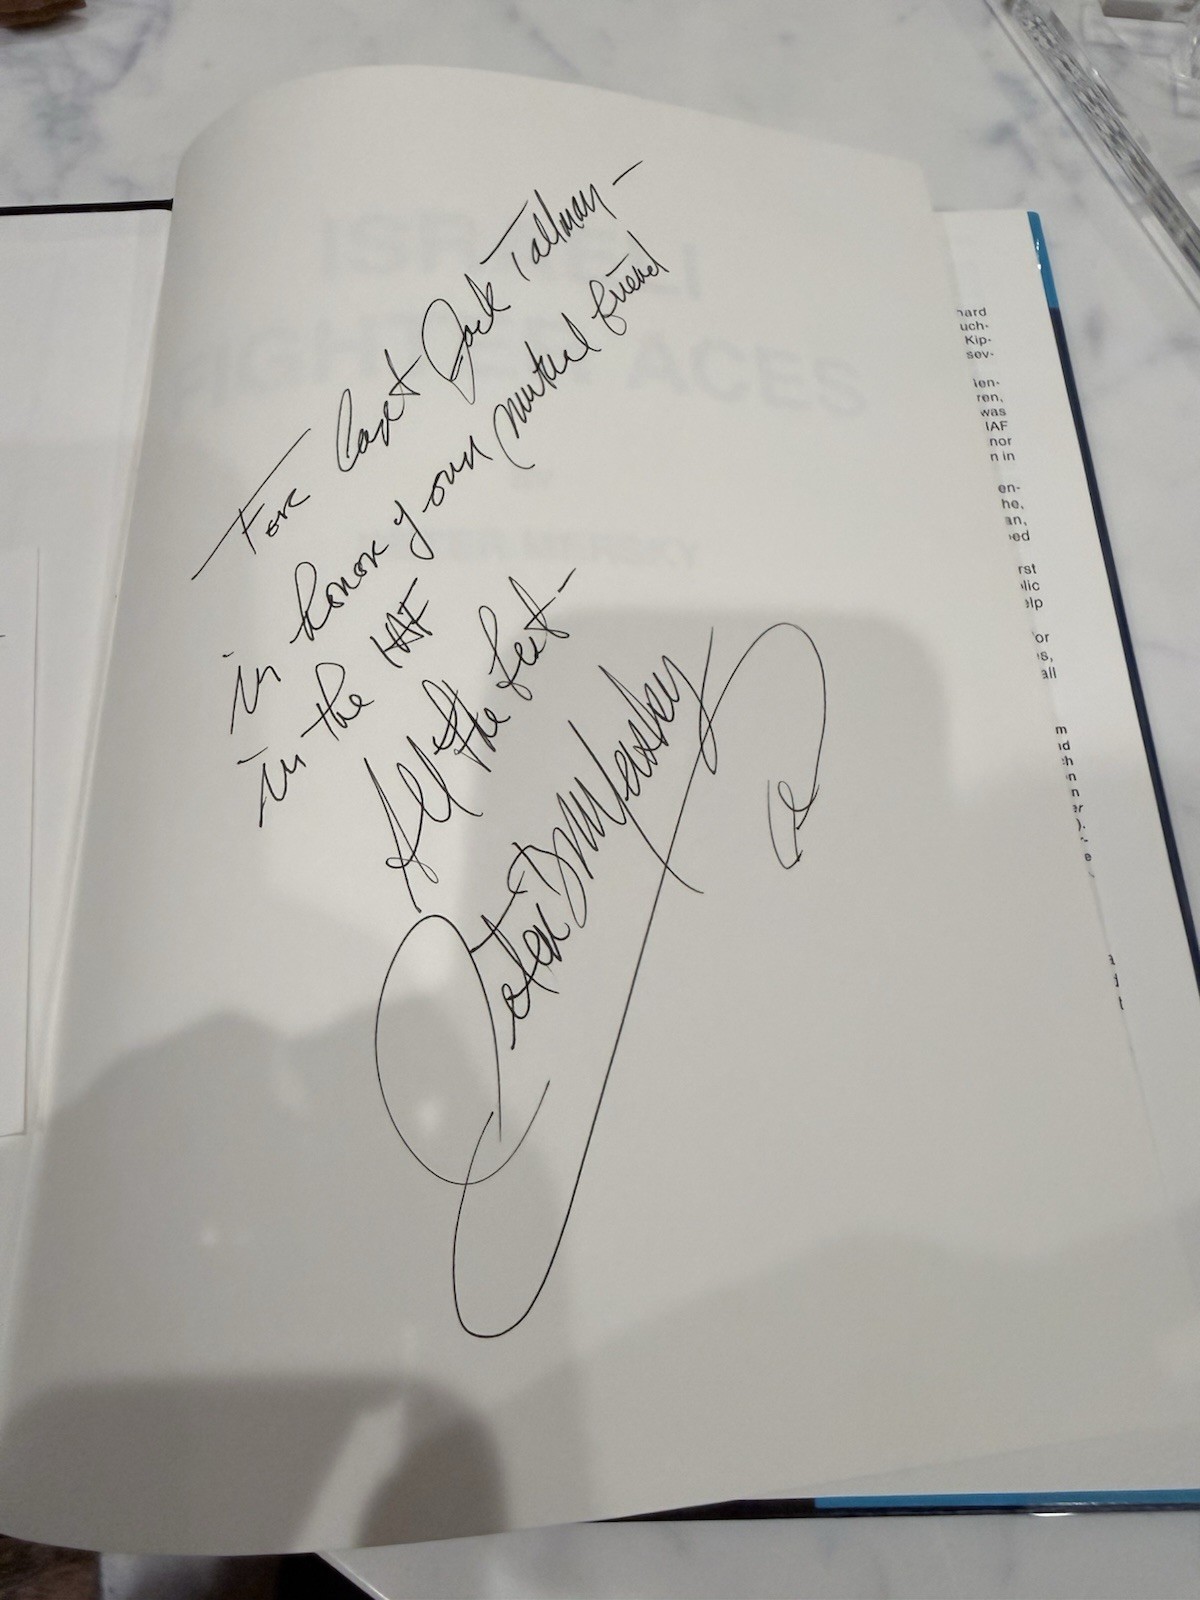 For Capt Jack Tallman –
in honor of our mutual friend
in the IAF
All the best –
Peter B Mersky
ISRAELI
FIGHTER ACES
PETER MERSKY
hard
uch-
Kip-
sev-
ien-
ren,
was
IAF
nor
n in
en-
he,
an,
ed
rst
lic
elp
or
is,
all
m
nd
th
n
n
er
).
e
d
t